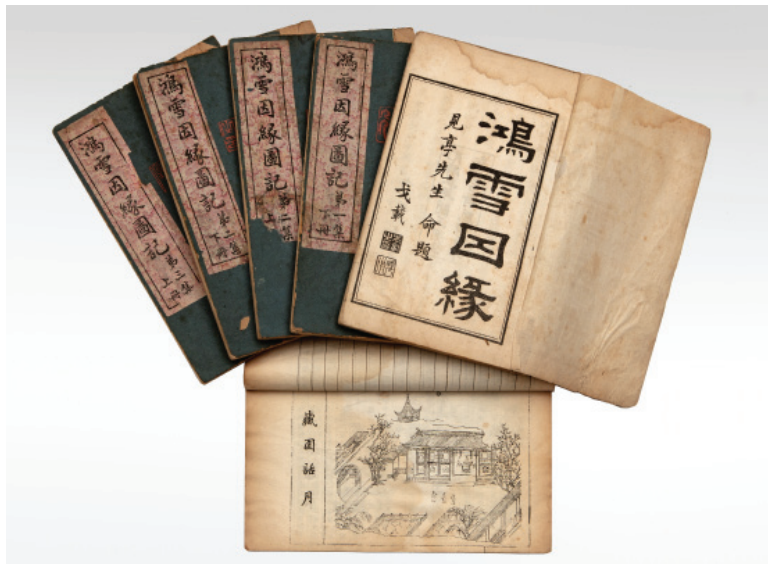 鴻雪因緣圖記 第三集
上冊
鴻雪因緣圖記 第二集
下冊
鴻雪因緣圖記 第二集
上
鴻雪因緣圖記 第一集
下冊
鴻雪囙緣
見亭先生 命題
戈載
園話月